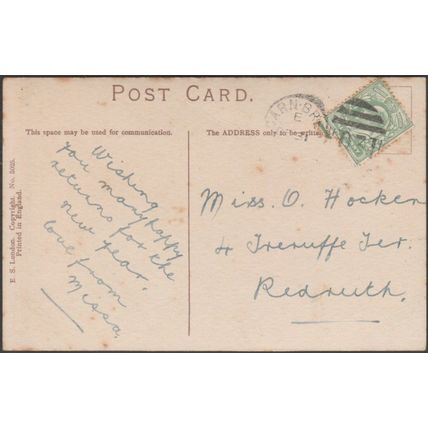 POST CARD.
This space may be used for communication.
The ADDRESS only to be written
E. S. London. Copyright. No. 5025.
Printed in England.
Wishing
you many happy
returns for the
new year.
love from
Missa.
Miss. O. Hocken
4 Treruffe Ter.
Redruth.
CARN-BREA
E